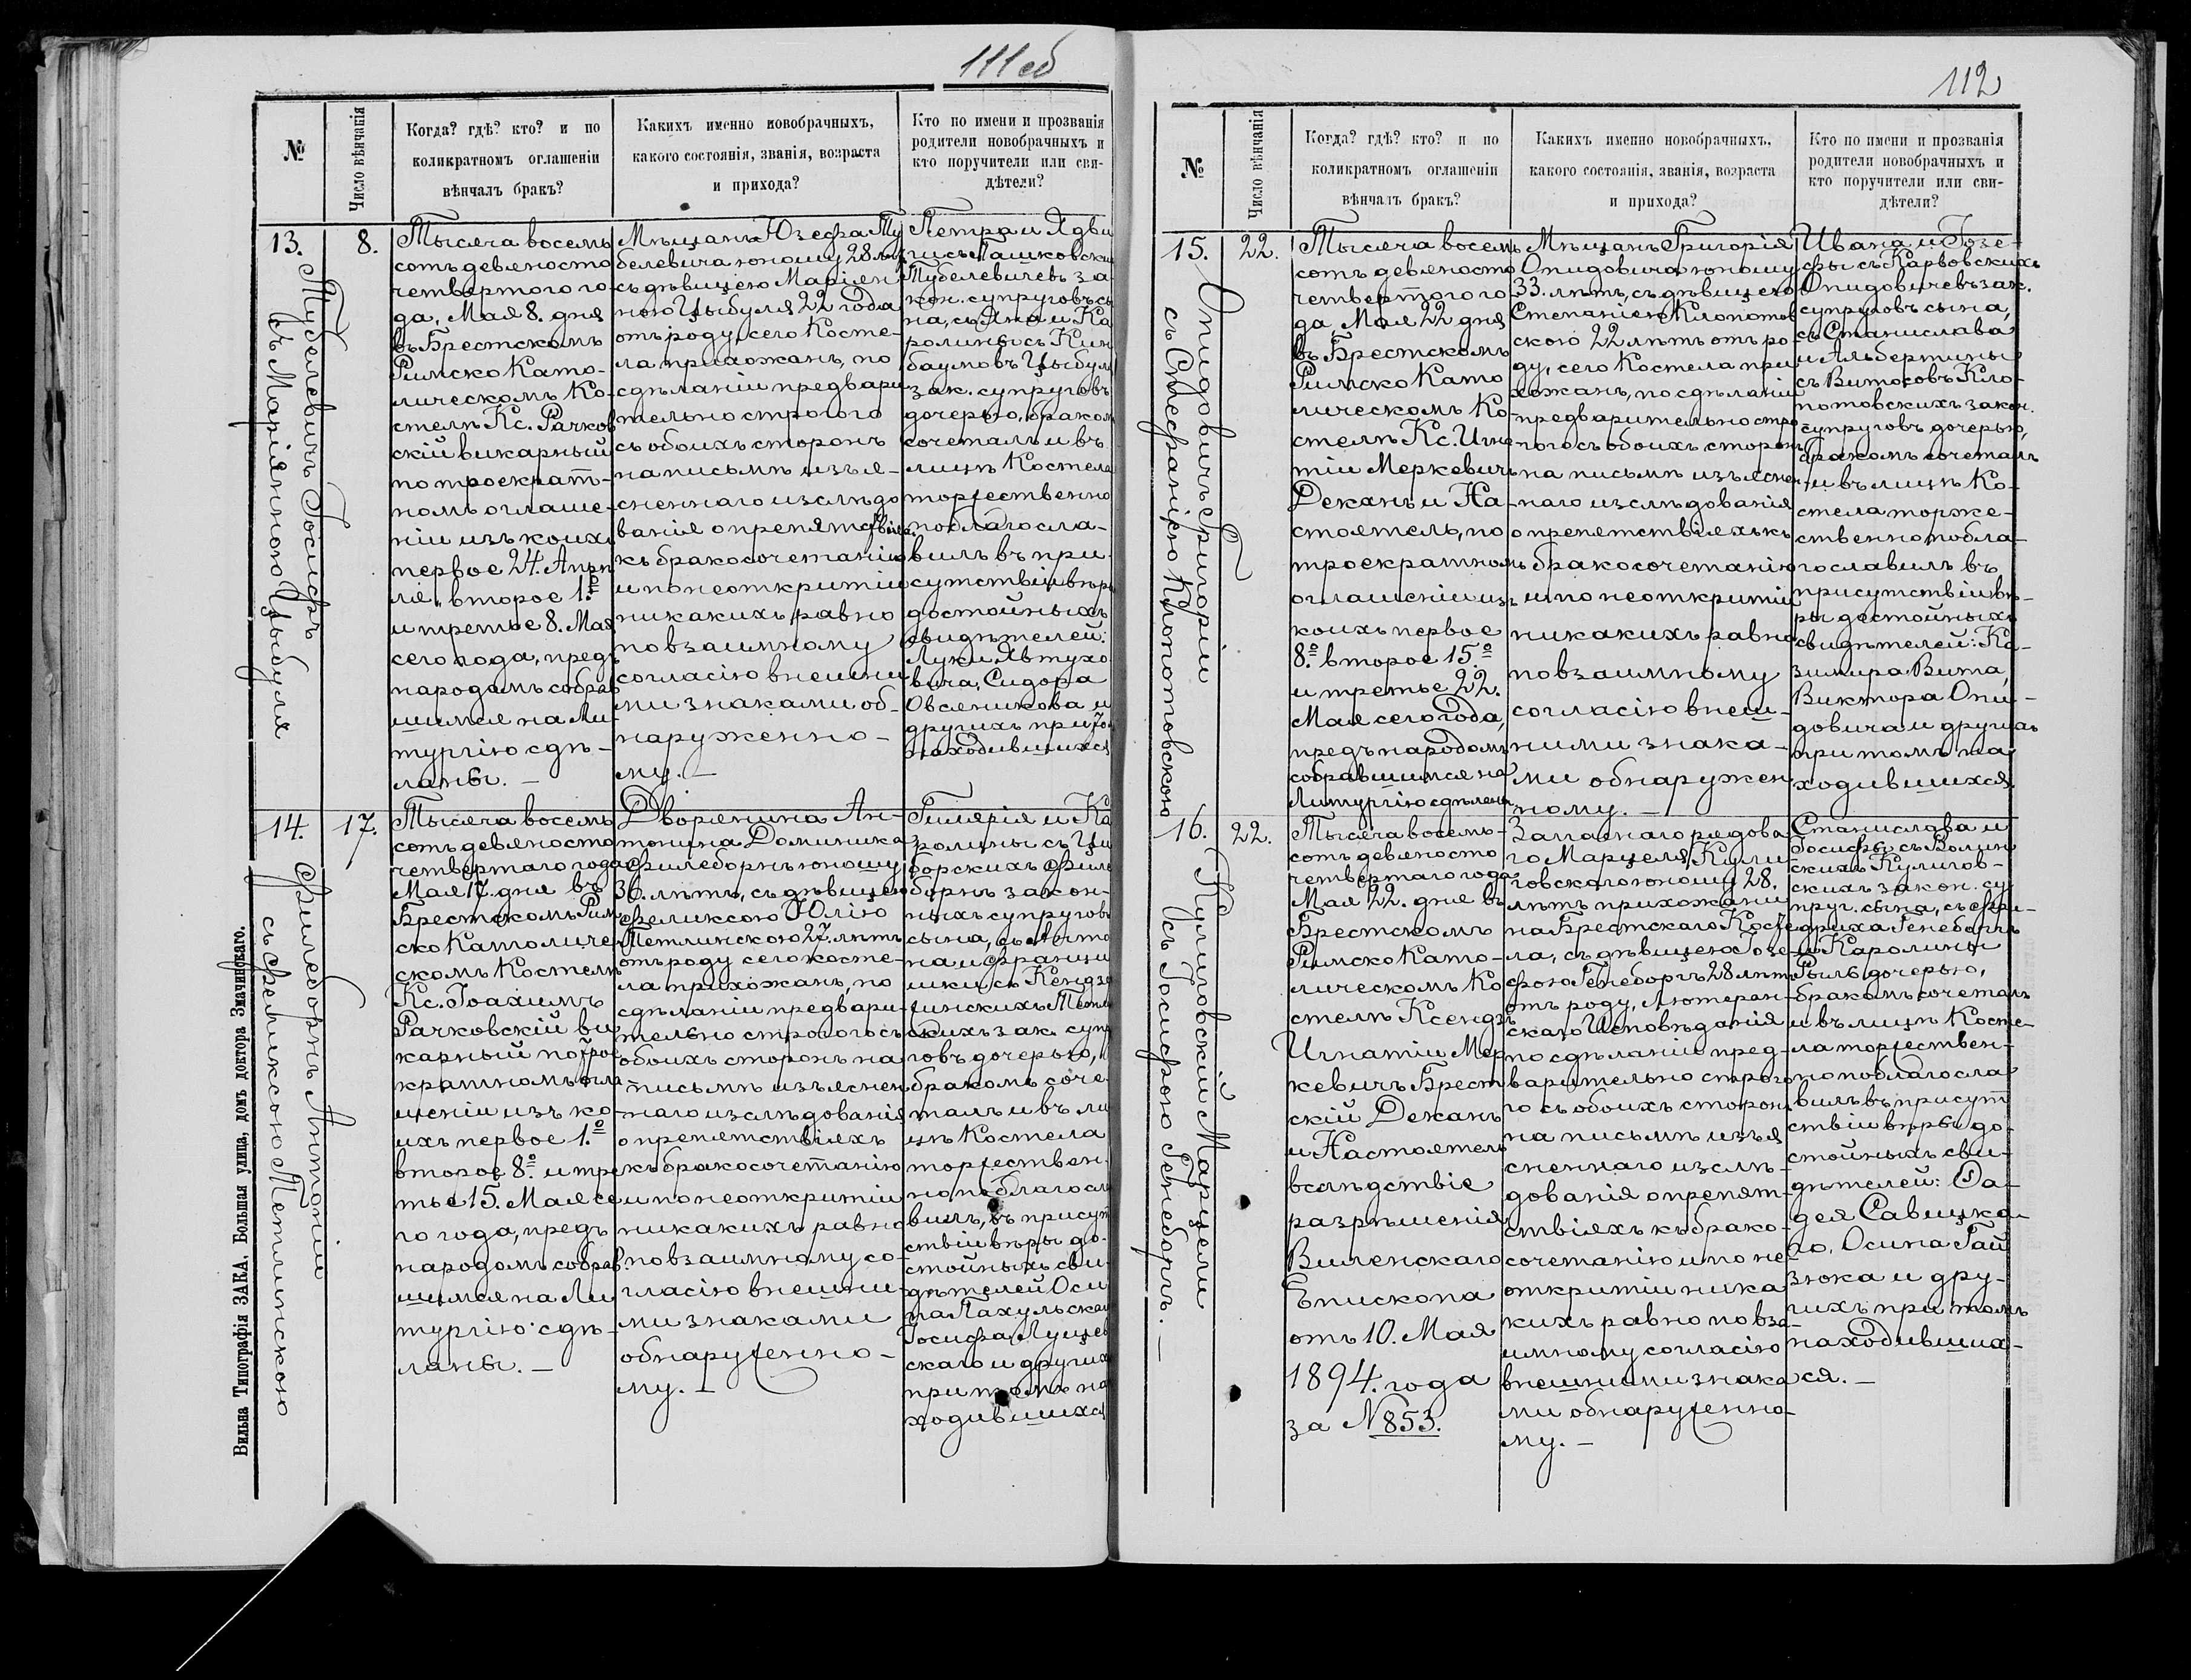 111 об
№
Число вѣнчанія
Когда? гдѣ? кто? и по
коликратномъ оглашеніи
вѣнчалъ бракъ?
Какихъ именно новобрачныхъ,
какого состоянія, званія, возраста
и прихода?
Кто по имени и прозванія
родители новобрачныхъ и
кто поручители или сви-
дѣтели?
13.
Тубелевичъ Іосифъ
съ Маріянною Цыбуля
8.
Тысяча восемь
сотъ девяносто
четвертого го-
да, Мая 8. дня
въ Брестскомъ
Римско Като-
лическомъ Ко-
стелѣ Кс. Рачков
скій викарный
по троекрат-
номъ оглаше-
ніи изъ коихъ
первое 24. Апрѣ
ля, второе 1.º
и третье 8. Мая
сего года, предъ
народомъ собрав
шимся на Ли-
тургію сдѣ-
ланы. —
Мѣщанъ Юзефа Ту
белевича юношу 28 лѣтъ
съ дѣвицею Маріян
ною Цыбуля 22 года
отъ роду, сего Косте-
ла прихожанъ, по
сдѣланіи предвари
тельно строгого
съ обоихъ сторонъ
на письмѣ изъя-
сненнаго изслѣдо
ванія о препятствіяхъ
къ бракосочетанію
и по неоткрытіи
никакихъ, равно
по взаимному
согласію внешни
ми знаками об-
наруженно-
му. —
Петра и Ядви
ги съ Пашковских
Тубелевичевъ за-
кон. супруговъ сы
на, съ Яна и Ка
ролины съ Кин
баумовъ Цыбуля
зак. супруговъ
дочерью, браком
сочеталъ и въ
лицѣ Костела
торжественно
поблагосла-
вилъ въ при-
сутствіи вѣры
достойныхъ
свидѣтелей:
Луки Явтухо
вича, Сидора
Овсяникова и
другихъ при том
находившихся
14.
Филеборнъ Антоній
съ Феликсою Петлинскою
17.
Тысяча восемь
сотъ девяносто
четвертаго года
Мая 17. дня въ
Брестскомъ Рим
ско Католиче
скомъ Костелѣ
Кс. Іоахимъ
Рачковскій ви
карный по трое
кратномъ огла
шеніи изъ ко
ихъ первое 1.º
второе 8.º и тре
тье 15. Мая се
го года, предъ
народомъ собрав
шимся на Ли
тургію сдѣ-
ланы. —
Дворянина Ан-
тонина Доминика
Филеборнъ юношу
36. лѣтъ, съ дѣвицею
Феликсою Юліею
Петлинскою 27. лѣтъ
отъ роду сего косте-
ла прихожанъ, по
сдѣланіи предвари-
тельно строгого съ
обоихъ сторонъ на
письмѣ изъяснен
наго изслѣдованія
о препятствіяхъ
къ бракосочетанію
и по неоткрытіи
никакихъ равно
по взаимному со-
гласію внешни-
ми знаками
обнаруженно-
му. —
Гилярія и Ка
ролины съ Ци
борскихъ Филе
борнъ закон-
ныхъ супруговъ
сына, съ Анто
на и Франци
шки съ Кендзе
скихъ зак. супр
говъ дочерью,
бракомъ соче-
талъ и въ ли
цѣ Костела
торжествен-
но поблагосл
вилъ, въ присут
ствіи вѣры до-
стойныхъ сви-
дѣтелей Оси
па Пахульскаго
Іосифа Луцев
скаго и другихъ
при томъ на
ходившихся
Вильна Типографія ЗАКА, Большая улица, домъ доктора Змачинскаго.
112
№
Число вѣнчанія
Когда? гдѣ? кто? и по
коликратномъ оглашеніи
вѣнчалъ бракъ?
Какихъ именно новобрачныхъ,
какого состоянія, званія, возраста
и прихода?
Кто по имени и прозванія
родители новобрачныхъ и
кто поручители или сви-
дѣтели?
15.
Опидовичъ Григорій
съ Стефаніею Клопотовскою
22.
Тысяча восемь
сотъ девяносто
четвертого го
да, Мая 22 дня
въ Брестскомъ
Римско Като
лическомъ Ко-
стелѣ Кс. Игна
тій Меркевичъ
Деканъ и На-
стоятель, по
троекратномъ
оглашеніи изъ
коихъ первое
8.º второе 15.º
и третье 22.
Мая сего года,
предъ народомъ
собравшимся на
Литургію сдѣланы
Мѣщанъ Григорія
Опидовича юношу
33. лѣтъ, съ дѣвицею
Стефаніею Клопотов
скою 22 лѣтъ отъ ро
ду, сего Костела при
хожанъ, по сдѣланіи
предварительно стро
гого съ обоихъ сторонъ
на письмѣ изъяснен
наго изслѣдованія
о препятствіяхъ къ
бракосочетанію
и по неоткрытіи
никакихъ равно
по взаимному
согласію внеш-
ними знака-
ми обнаружен
ному. —
Ивана и Іозе-
фы съ Карвовскихъ
Опидовичевъ зак.
супруговъ сына,
съ Станислава
и Альбертины
съ Витосовъ Кло-
потовскихъ закон.
супруговъ дочерью,
бракомъ сочеталъ
и въ лицѣ Ко-
стела торже-
ственно побла-
гославилъ въ
присутствіи вѣ-
ры достойныхъ
свидѣтелей: Ка-
зимира Вита,
Виктора Опи-
довича и другихъ
при томъ на
ходившихся.
16.
Кулиговскій Марцели
съ Іосифою Генеборгъ. —
22.
Тысяча восемь-
сотъ девяносто
четвертаго года
Мая 22. дня въ
Брестскомъ
Римско Като-
лическомъ Ко
стелѣ Ксендзъ
Игнатій Мер
кевичъ Брест
скій Деканъ
и Настоятель
вслѣдствіе
разрѣшенія
Виленскаго
Епископа
отъ 10. Мая
1894. года
за № 853.
Запаснаго рядова
го Марцеля Кули
говскаго юношу 28.
лѣтъ прихожани
на Брестскаго Косте
ла, съ дѣвицею Іозе
фою Генеборгъ 28 лѣтъ
отъ роду, Лютеран-
скаго Исповѣданія
по сдѣланіи пред-
варительно строго
го съ обоихъ сторонъ
на письмѣ изъя
сненнаго изслѣ-
дованія о препят-
ствіяхъ къ брако-
сочетанію и по не
открытіи ника
кихъ равно по вза-
имному согласію
внешними знака
ми обнаруженно-
му. —
Станислава и
Іосифы съ Волин
скихъ Кулигов-
скихъ закон. су
пруг. сына, съ Фри-
дриха Генеборгъ
и Каролины
Рыль дочерью,
бракомъ сочеталъ
и въ лицѣ Косте-
ла торжествен-
но поблагосла
вилъ въ присут
ствіи вѣры до-
стойныхъ сви-
дѣтелей: Фа-
дея Савицка-
го, Осипа Гай
зюка и дру-
гихъ при томъ
находивших-
ся. —